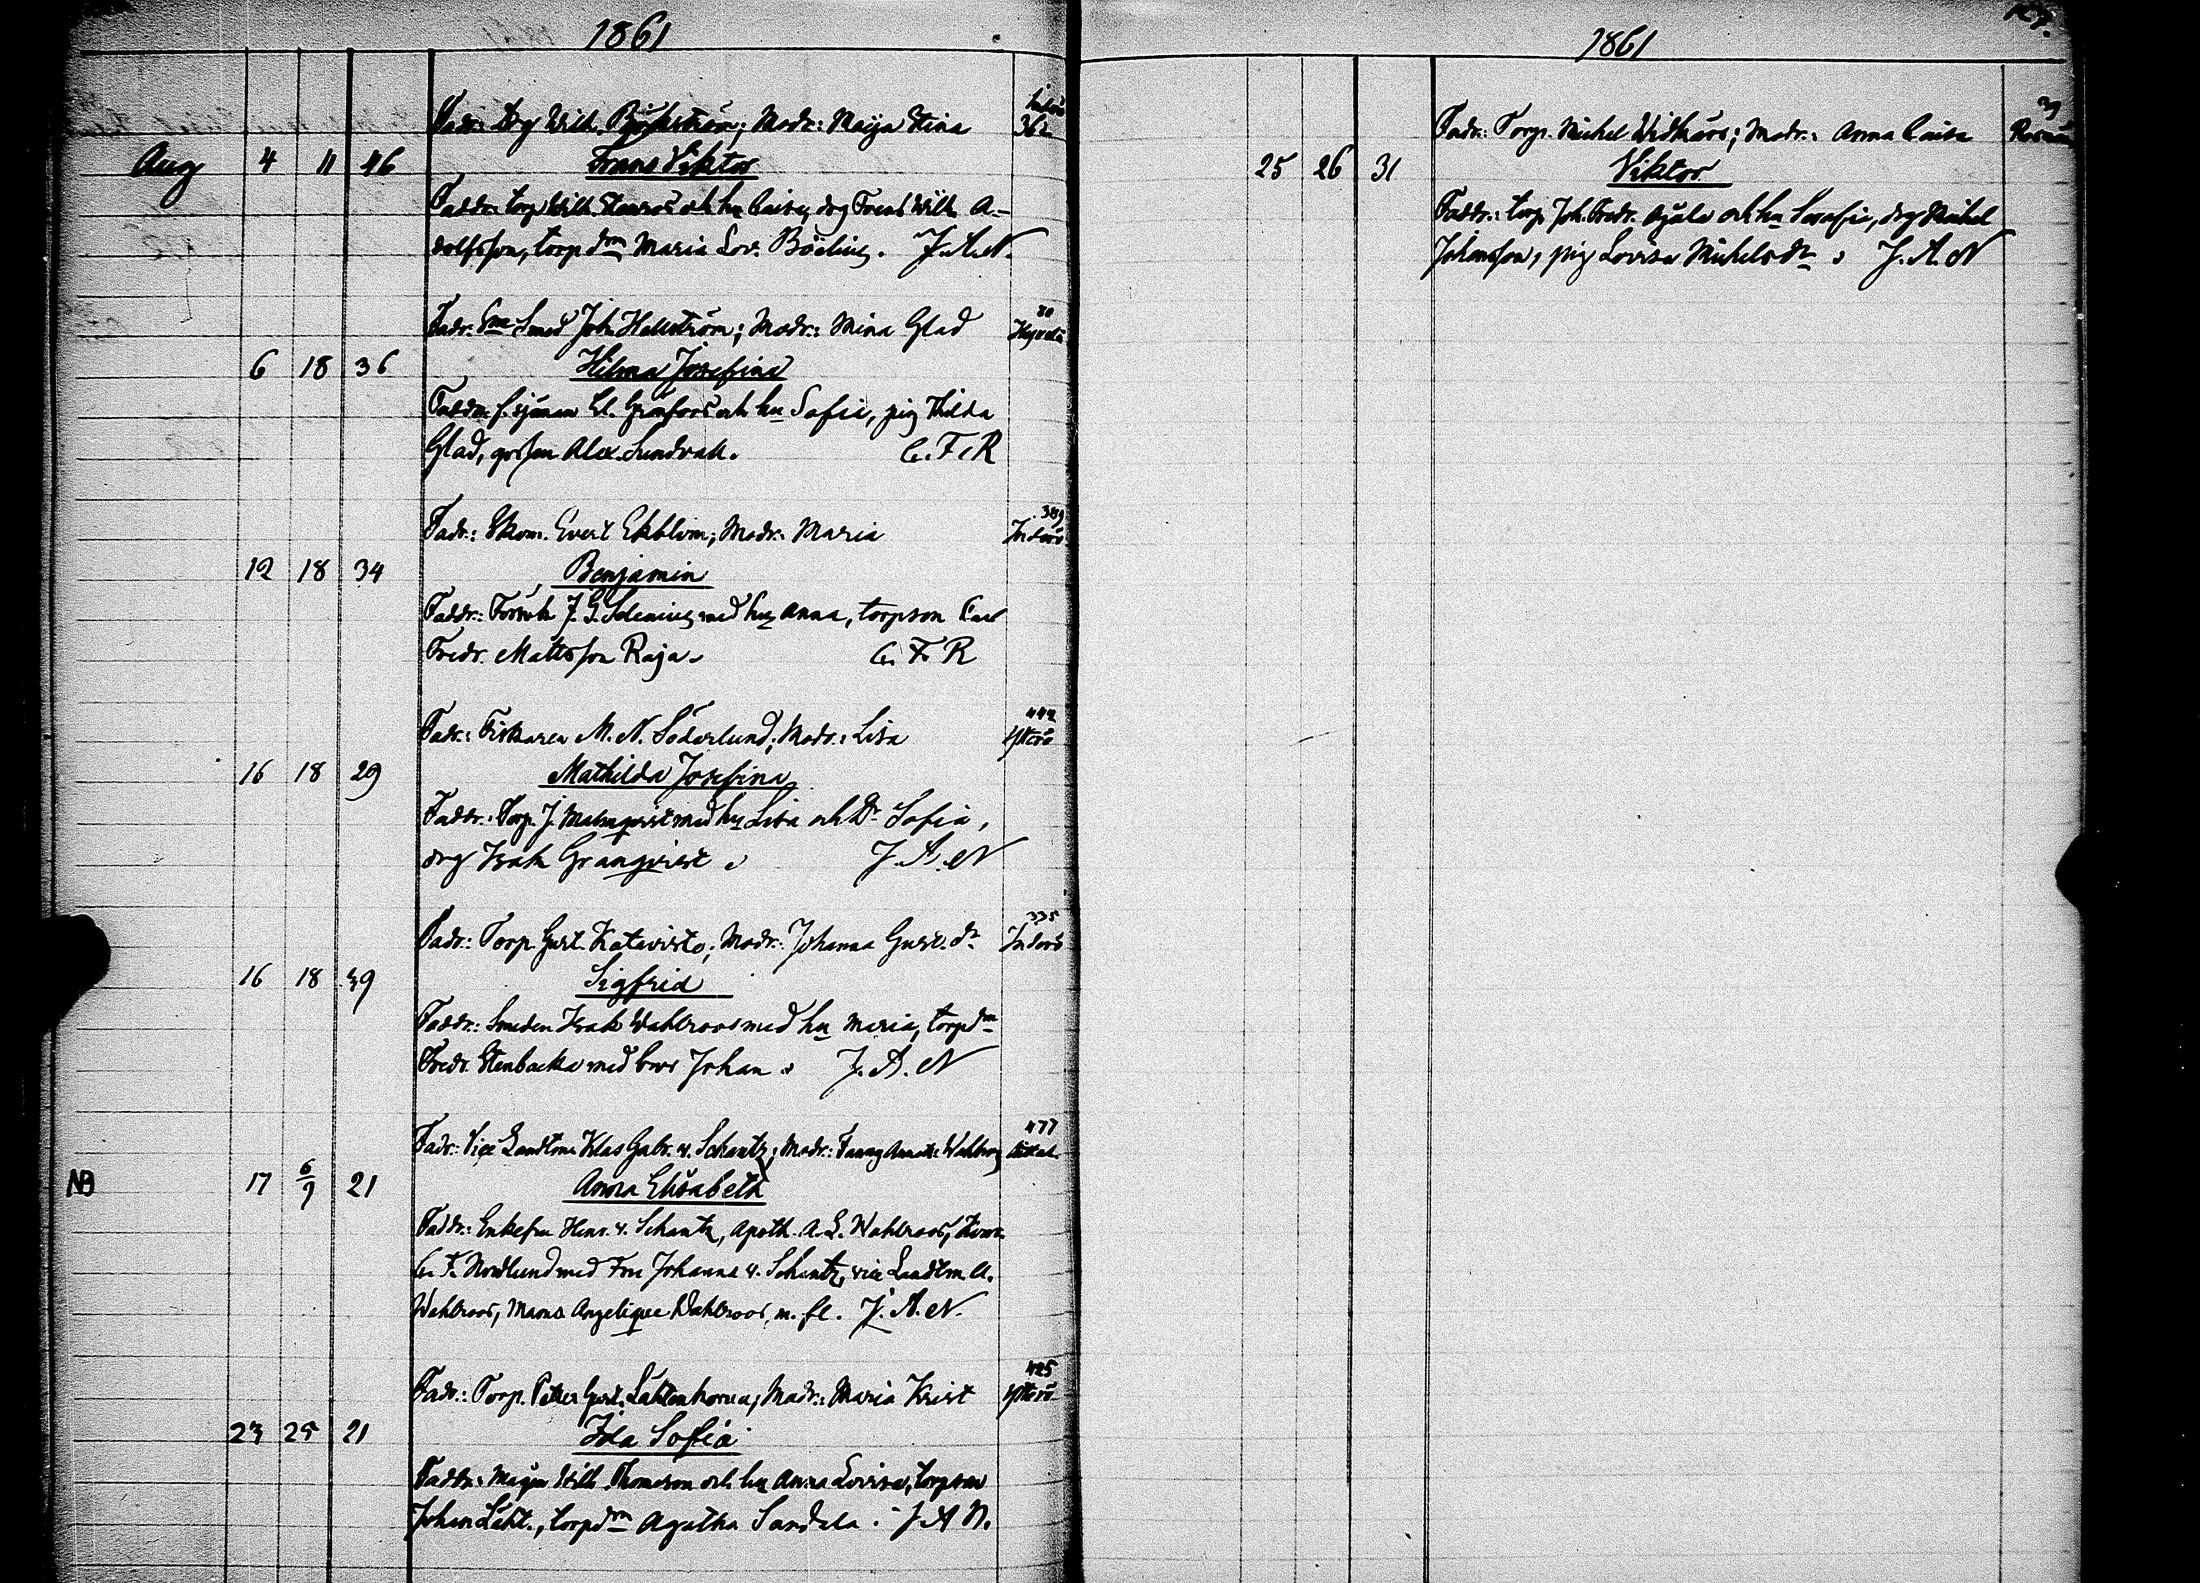 1861
Fadr: Drg Wilh. Björkström; Modr: Maija Stina
Indrö 362
Aug 4 11 46 Frans Viktor
Faddr: torp Wilh. och hu Caisa, drg Frans Wilh. A-
dolfsson, torpdn Maria Lov. Böelius. J.A.N.
Fadr: Smed Joh. Hellström; Modr: Mina Glad
80
6 18 36 Hilma Josefina
Faddr: f. sjöman El. Granfors och hu Sofia, pig Thilda
Glad, gossen Alex. Sundvall. C. F. R
Fadr: Skom. Evert Ekblom; Modr: Maria
389 Inderö
12 18 34 Benjamin
Faddr: J. G. med hu Anna, torpson Carl
Fredr. Mattsson Raja. C. F. R
Fadr: Fiskaren M. N. Söderlund; Modr: Lisa
444 Ytterö
16 18 29 Mathilda Josefina
Faddr: Torp. J. Malmqvist med hu Lisa och Dr Sofia,
drg Isak Granqvist. J. A. N
Fadr: Torp. Gust. Katavisto; Modr: Johanna Gust. dr
335 Inderö
16 18 39 Sigfrid
Faddr: Smeden Isak Wahlroos med hu Maria, torpdn
Fredr. Stenbacka med bror Johan. J. A. N
Fadr: Vice Landtm. Klas Gabr. v. Schantz; Modr: Fanny Wahlroos
477
NB 17 6/9 21 Anna Elisabeth
Faddr: Enkefru Henr. v. Schantz, Apoth. A. E. Wahlroos,
C. F. Nordlund med Fru Johanna v. Schantz, vice Landtm. A.
Wahlroos, Mams Angelique Wahlroos, m. fl. J. A. N.
Fadr: Torp. Petter Gust. Lahtenkorva; Modr: Maria Krist
425 Ytterö
23 25 21 Ida Sofia
Faddr: Wilh. Thomson och hu Anna Lovisa, torpson
Johan Läht., torpdn Agatha Sandela. J A N.
1861
Fadr: Torp. Michel Widkärs; Modr: Anna Caisa
39
25 26 31 Viktor
Faddr: torp. Joh. Fredr. och hu Serafia, drg Michel
Johansson, pig Lovisa Michelsdr. J. A. N